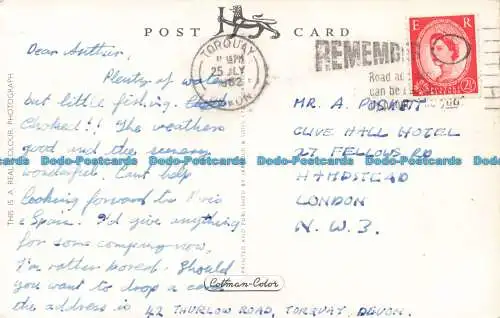 POST CARD
TORQUAY
PM
25 JLY
1962
DEVON
REMEMB
Road ac
can be
E R
2½D
Dear Arthur,
Plenty of water
but little fishing.
Choked!! The weathers
good and the scenery
wonderful. Cant help
looking forward to Paris
& Spain. I'd give anything
for some company now,
I'm rather bored. Should
you want to drop a
the address is 42 THURLOW ROAD, TORQUAY, DEVON.
MR. A.
CLIVE HALL HOTEL
27 FELLOWS RD
HAMPSTEAD
LONDON
N.W.3.
THIS IS A REAL COLOUR PHOTOGRAPH
PRINTED AND PUBLISHED BY
Cotman-Color
Dodo-Postcards Dodo-Postcards Dodo-Postcards Dodo-Postcards Dodo-Postcards